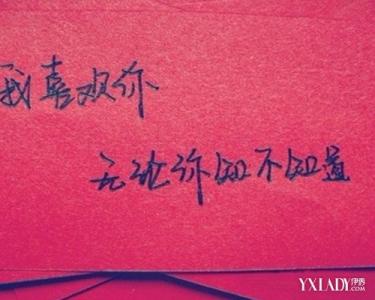 我喜欢你
无论你知不知道
YXLADY伊秀.COM